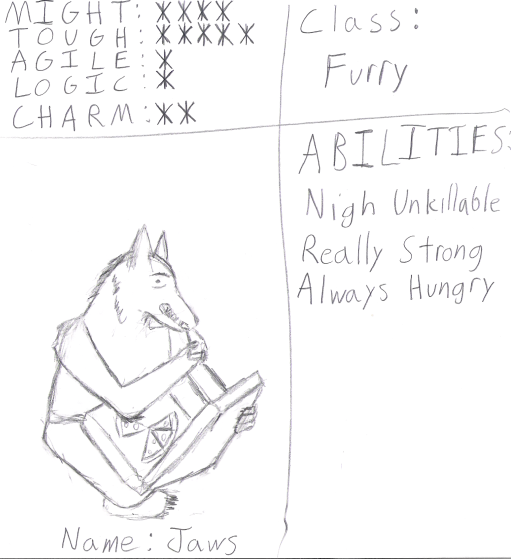 MIGHT: ****
TOUGH: *****
AGILE: *
LOGIC: *
CHARM: **
Class:
Furry
ABILITIES:
Nigh Unkillable
Really Strong
Always Hungry
Name: Jaws